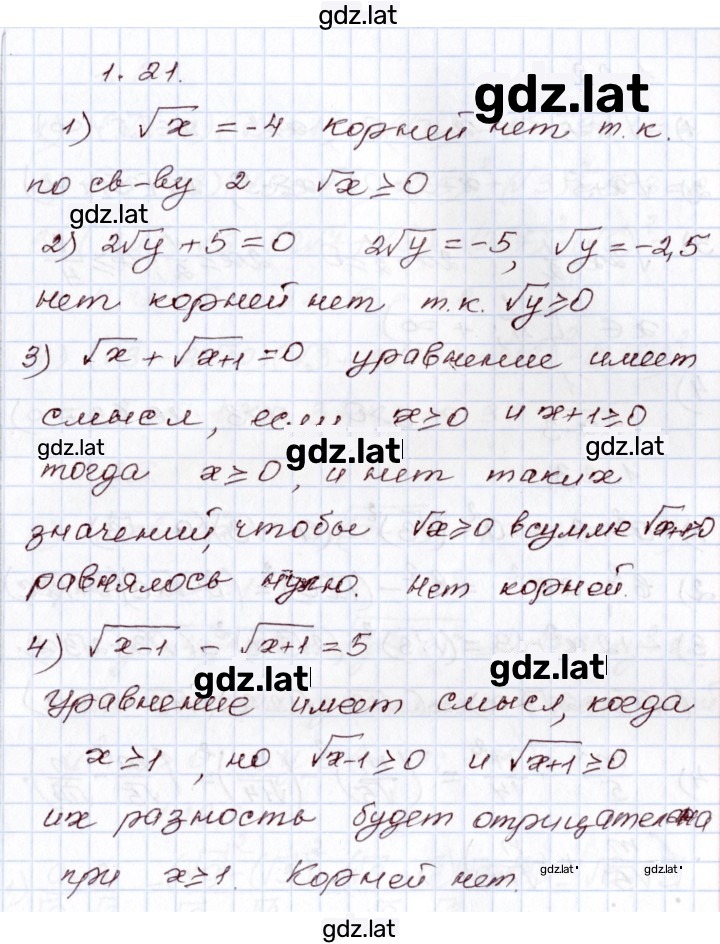 gdz.lat
1.21.
gdz.lat
1) √x = -4 корней нет т.к.
по св-ву 2 √x ≥ 0
gdz.lat
2) 2√y + 5 = 0 2√y = -5, √y = -2,5
нет корней нет т.к. √y ≥ 0
3) √x + √x+1 = 0 уравнение имеет
смысл, x ≥ 0 и x+1 ≥ 0
gdz.lat gdz.lat gdz.lat
тогда x ≥ 0, и нет таких
значений, чтобы √x ≥ 0 в сумме √x+1 ≥ 0
равнялось нулю. Нет корней.
4) √x-1 - √x+1 = 5
gdz.lat gdz.lat
Уравнение имеет смысл, когда
x ≥ 1, но √x-1 ≥ 0 и √x+1 ≥ 0
их разность будет отрицательна
при x ≥ 1. Корней нет.
gdz.lat gdz.lat
gdz.lat